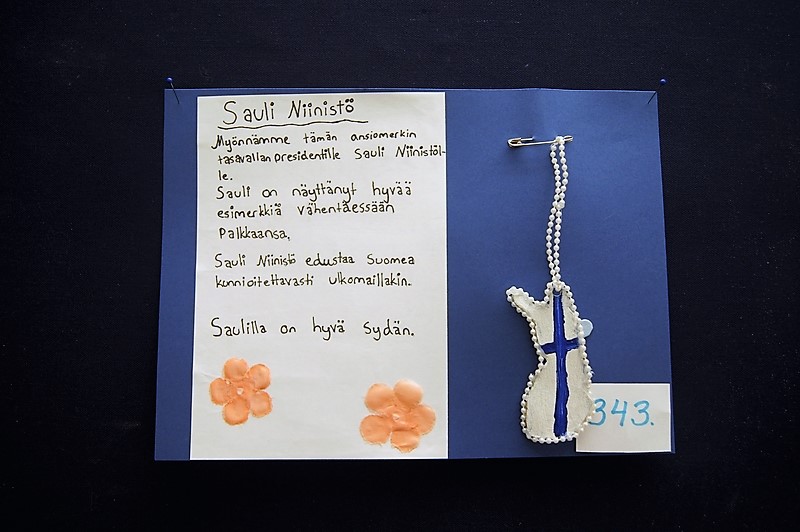 Sauli Niinistö
Myönnämme tämän ansiomerkin
tasavallan presidentille Sauli Niinistöl-
le.
Sauli on näyttänyt hyvää
esimerkkiä vähentäessään
Palkkaansa.
Sauli Niinistö edustaa Suomea
kunnioitettavasti ulkomaillakin.
Saulilla on hyvä sydän.
343.